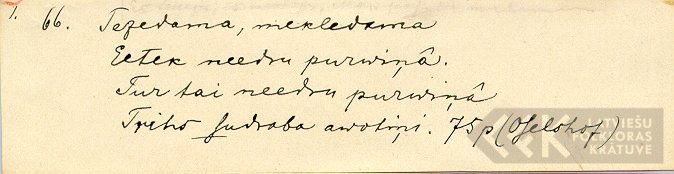 1. 66. Tezedama, mekledama
Eetek needru purwiņâ.
Tur tai needru purwiņâ
Trihs sudraba awotiņi. 75p (Ohselshof)
LATVIEŠU
FOLKLORAS
KRĀTUVE